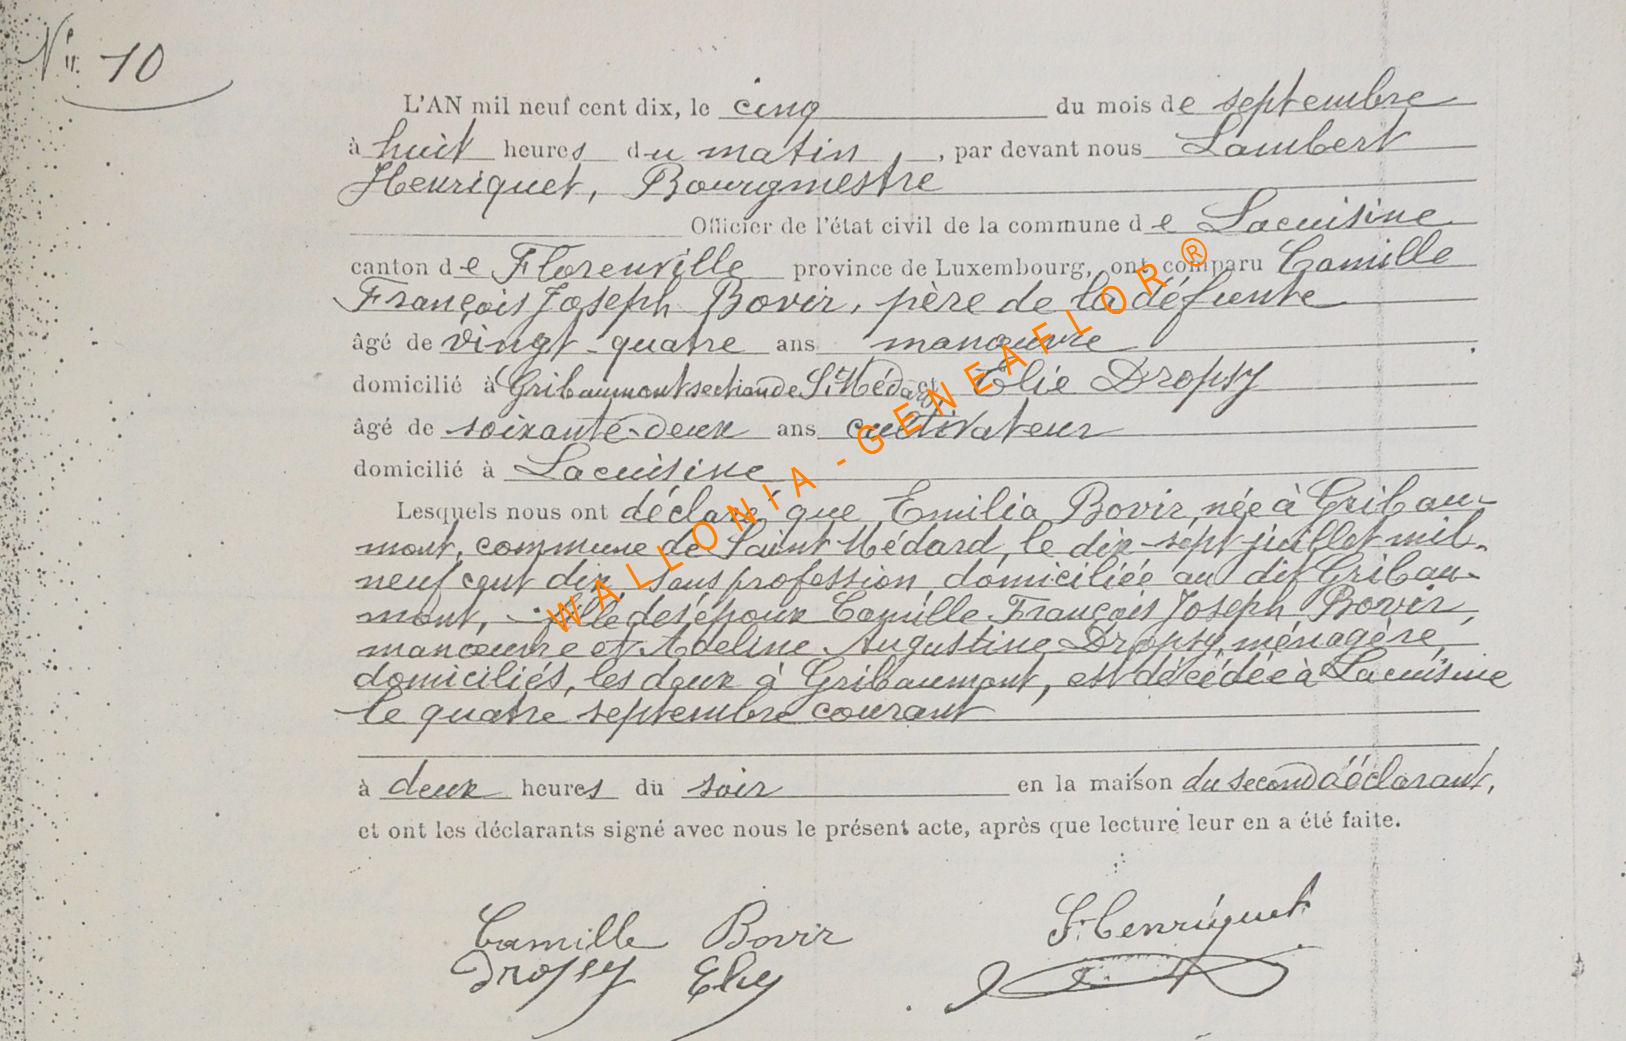 N° 10
L'AN mil neuf cent dix, le cinq du mois de septembre
à huit heures du matin, par devant nous Lambert
Henriquet, Bourgmestre
Officier de l'état civil de la commune de Lacuisine
canton de Florenville province de Luxembourg, ont comparu Camille
François Joseph Bovir, père de la défunte
âgé de vingt-quatre ans manœuvre
domicilié à Gribaumont section de St Médard, et Elie Dropsy
âgé de soixante-deux ans cultivateur
domicilié à Lacuisine
Lesquels nous ont déclaré que Emilia Bovir, née à Gribau-
mont, commune de Saint Médard, le dix-sept juillet mil-
neuf cent dix, sans profession, domiciliée au dit Gribau-
mont, fille des époux Camille François Joseph Bovir,
manœuvre et Adeline Augustine Dropsy, ménagère,
domiciliés, les deux à Gribaumont, est décédée à Lacuisine
le quatre septembre courant
à deux heures du soir en la maison du second déclarant,
et ont les déclarants signé avec nous le présent acte, après que lecture leur en a été faite.
Camille Bovir Henriquet
Dropsy Eliy
WALLONIA - GENEAFLOR ®